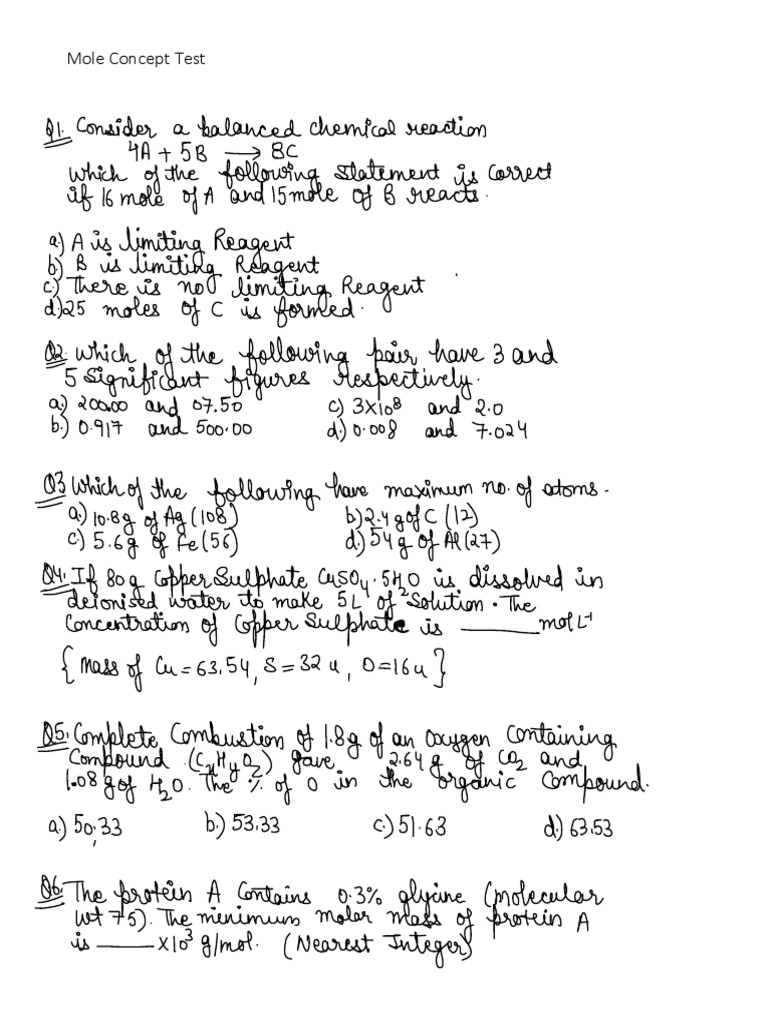 Mole Concept Test
Q1. Consider a balanced chemical reaction
4A + 5B → 8C
which of the following statement is correct
if 16 mole of A and 15 mole of B reacts.
a) A is limiting Reagent
b) B is limiting Reagent
c) There is no limiting Reagent
d) 25 moles of C is formed.
Q2. which of the following pair have 3 and
5 significant figures respectively.
a) 200.00 and 07.50 c) 3×10⁸ and 2.0
b) 0.917 and 500.00 d) 0.008 and 7.024
Q3 Which of the following have maximum no. of atoms.
a) 10.8g of Ag (108) b) 2.4g of C (12)
c) 5.6g of Fe (56) d) 54g of Al (27)
Q4. If 80g Copper Sulphate CuSO₄·5H₂O is dissolved in
deionised water to make 5L of Solution. The
Concentration of Copper Sulphate is ______ mol L⁻¹
{ Mass of Cu = 63.54, S = 32 u, O = 16 u }
Q5. Complete Combustion of 1.8g of an Oxygen Containing
Compound (CxHyOz) gave 2.64 g of CO₂ and
1.08 g of H₂O. The % of O in the organic Compound.
a) 50.33 b) 53.33 c) 51.63 d) 63.53
Q6. The protein A contains 0.3% glycine (molecular
wt 75). The minimum molar mass of protein A
is ______ ×10³ g/mol. (Nearest Integer)